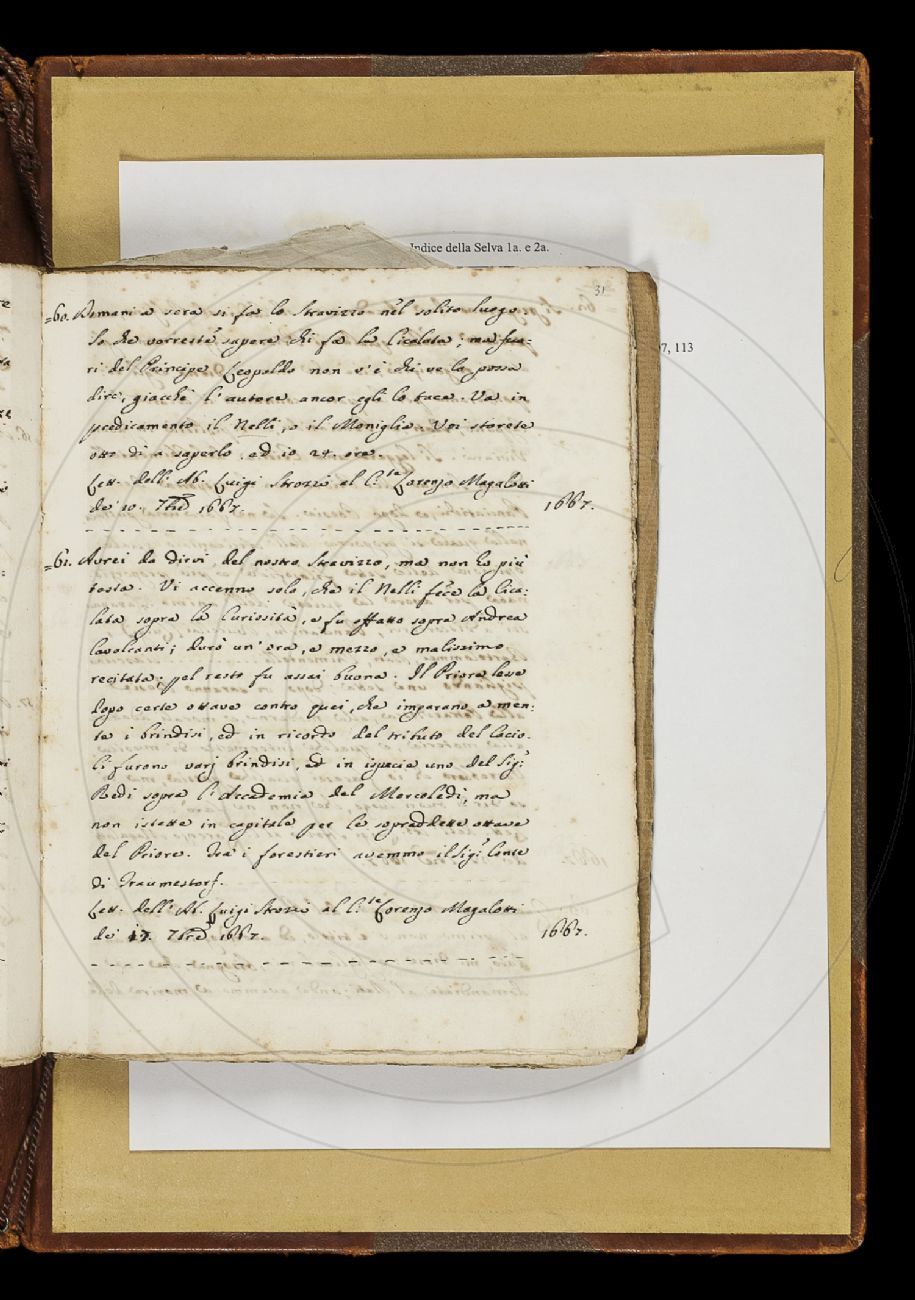 Indice della Selva 1a. e 2a.
7, 113
31
=60. Domani a sera si fa lo Stravizzo nel solito luogo.
So che vorreste sapere chi fa la Cicalata; ma fuo-
ri del Principe Leopoldo non v'è chi ve lo possa
dire, giacchè l'autore ancor egli lo tace. Va in
predicamento il Nelli, o il Moniglia. Voi starete
otto dì a saperlo, ed io 24. ore.
Lett. dell'Ab. Luigi Strozzi al C.te Lorenzo Magalotti
de' 10. 7bre 1667.
1667.
=61. Avrei da dirvi del nostro Stravizzo, ma non ho più
testa. Vi accenno solo, che il Nelli fece la Cica-
lata sopra la Curiosità, e fu affatto sopra Andrea
Cavalcanti; durò un'ora, e mezzo, e malissimo
recitata; pel resto fu assai buona. Il Priore lesse
dopo certe ottave contro quei, che imparano a men-
te i brindisi, ed in ricordo del tributo del Cacio.
Ci furono varj brindisi, ed in ispecie uno del Sig.r
Redi sopra l'Accademia del Mercoledì, ma
non istette in capitale per le sopraddette ottave
del Priore. Tra i forestieri avemmo il Sig.r Conte
di Traumestorf.
Lett. dell'Ab. Luigi Strozzi al C.te Lorenzo Magalotti
de' 17. 7bre 1667.
1667.